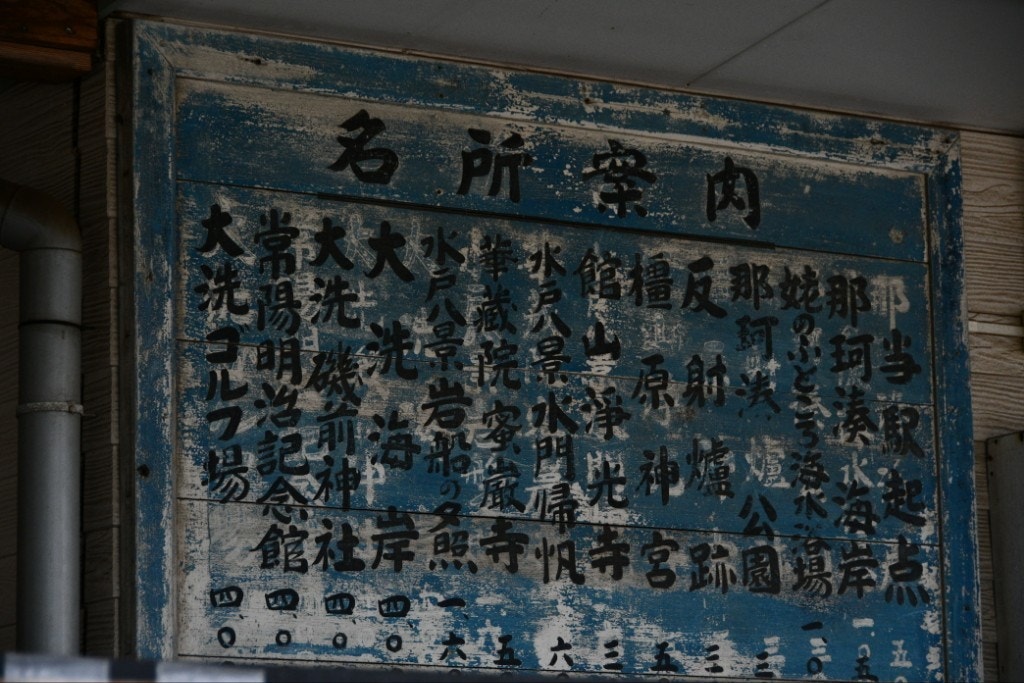 名所案内
当駅起点
那珂湊海岸 一.〇
姥のふところ海水浴場 一.〇
那珂湊公園 三
反射爐跡 三
橿原神宮 五
館山淨光寺 三
水戸八景水門帰帆 六
華蔵院蜜巌寺 五
水戸八景岩船の夕照 一.六
大洗海岸 四.〇
大洗磯前神社 四.〇
常陽明治記念館 四.〇
大洗ゴルフ場 四.〇